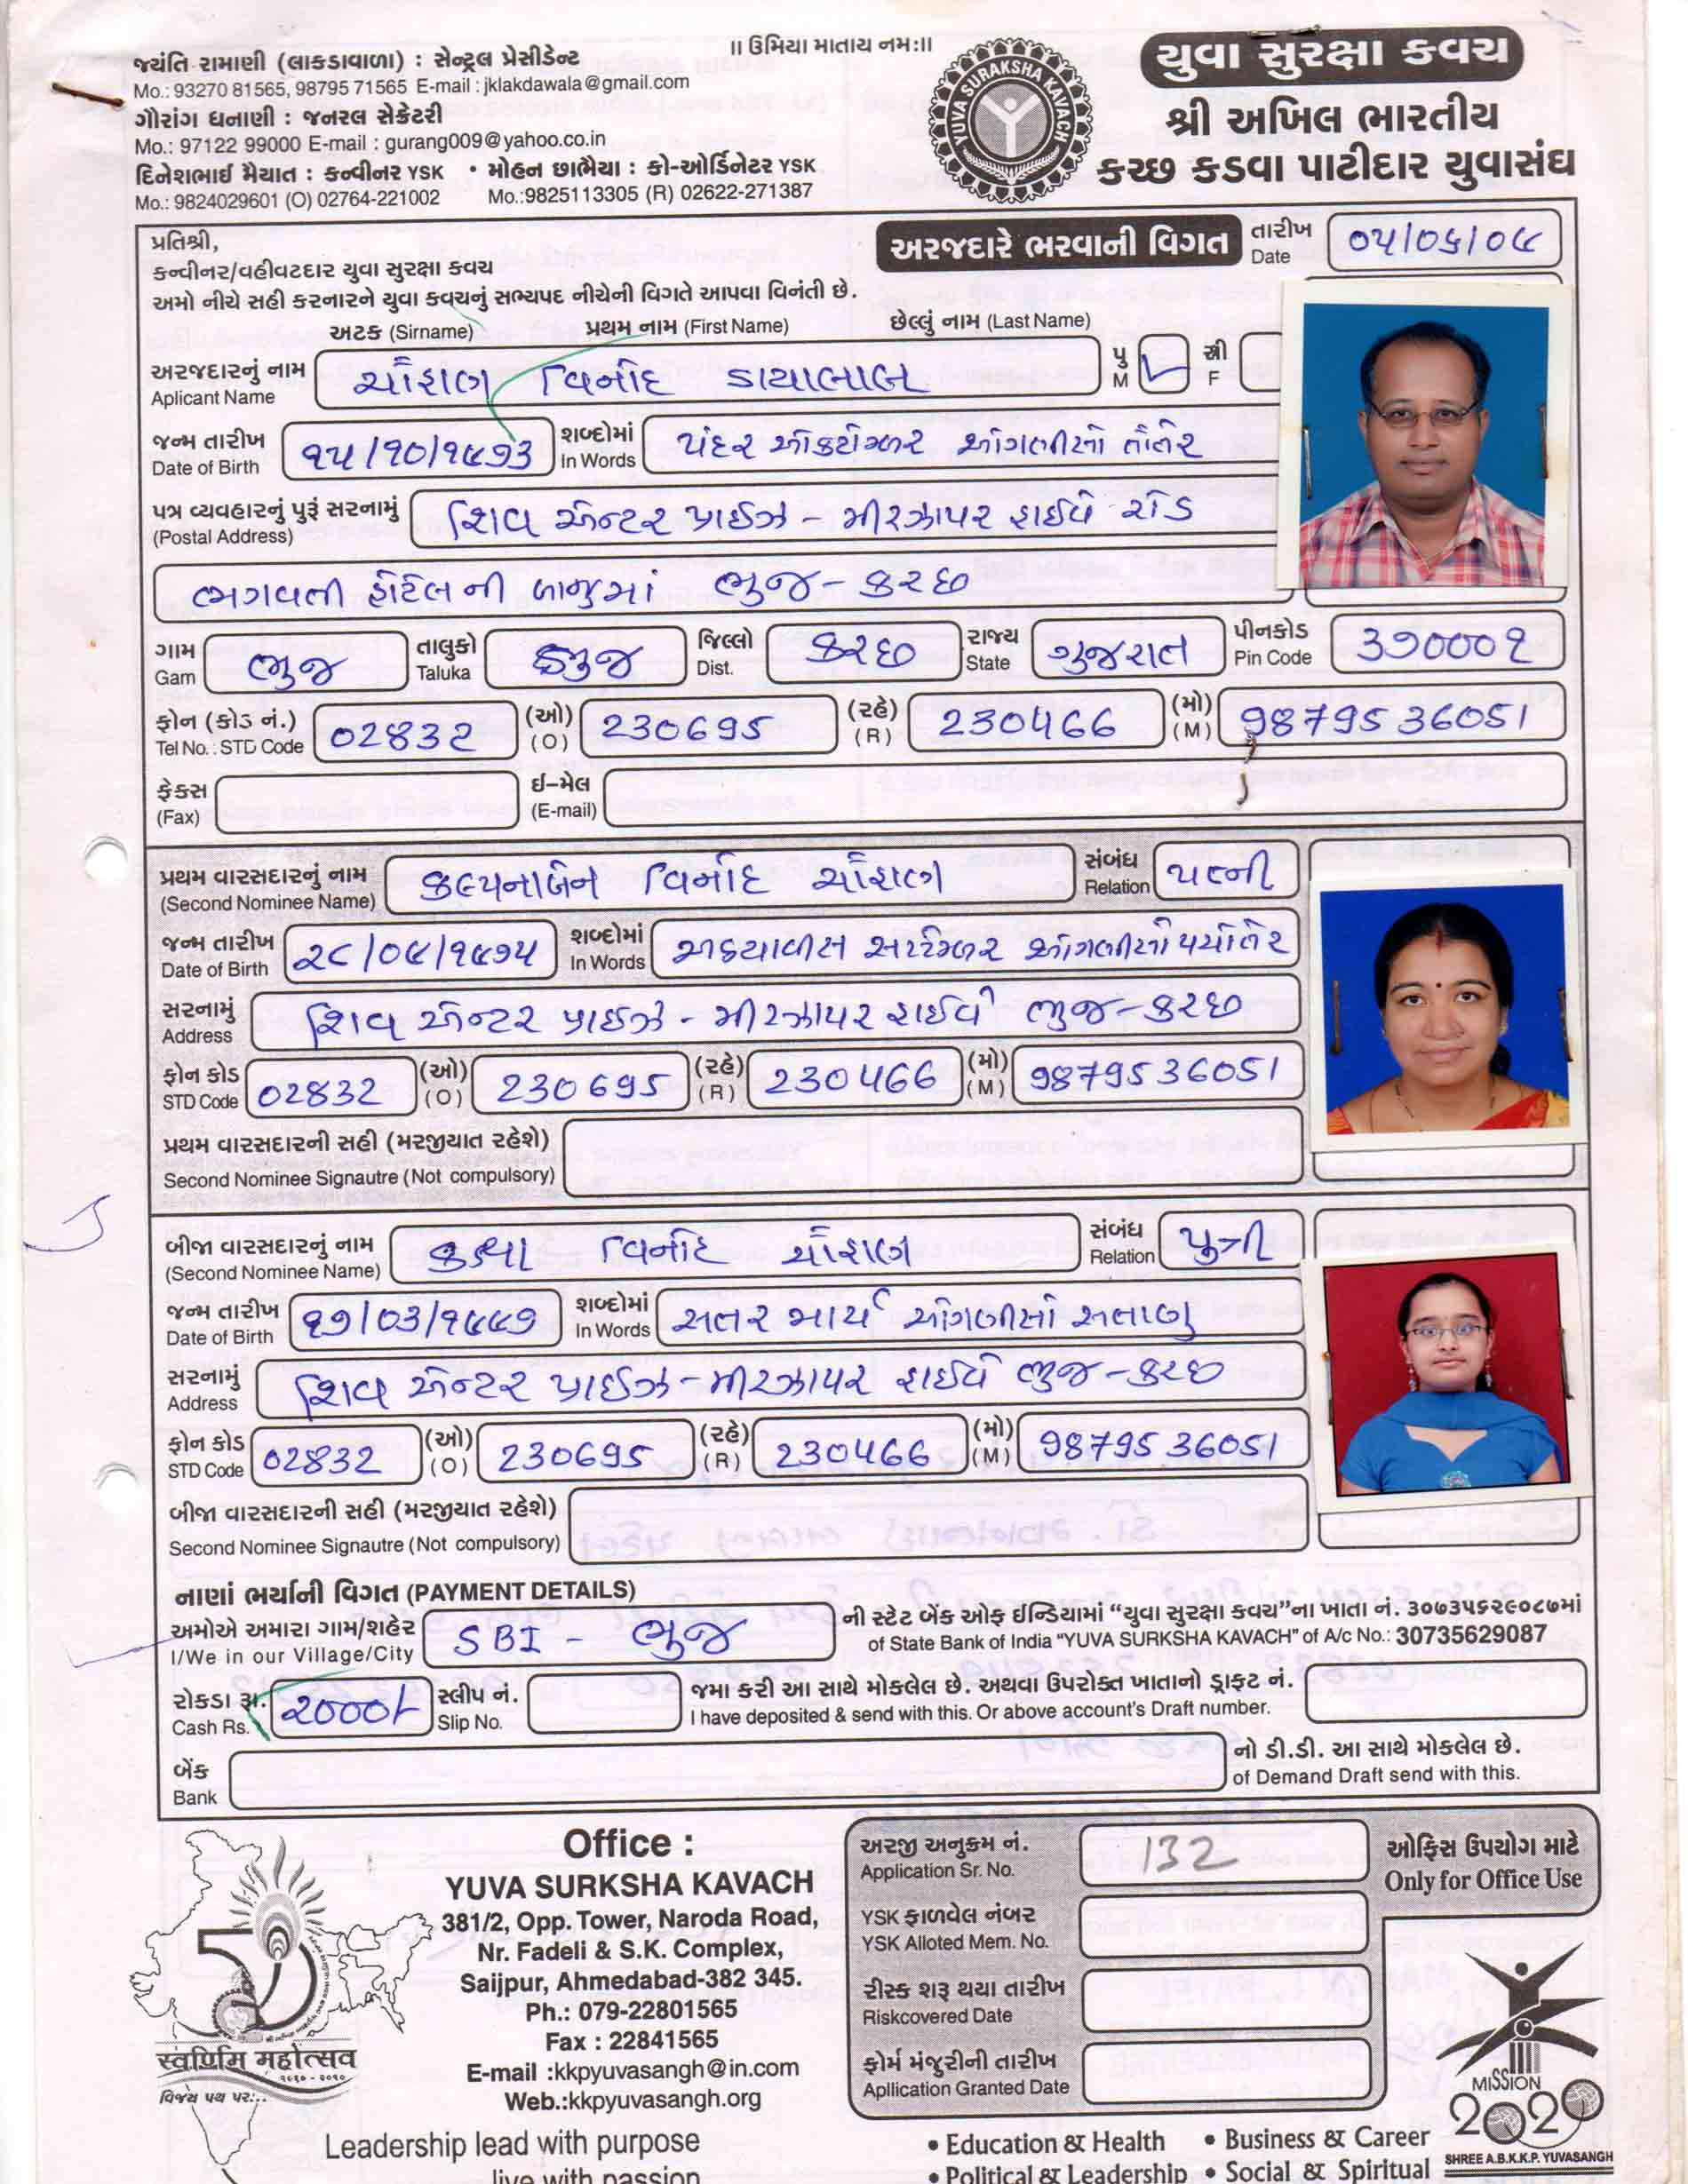 ॥ ઉમિયા માતાય નમઃ॥
જયંતિ રામાણી (લાકડાવાળા) : સેન્ટ્રલ પ્રેસીડેન્ટ
Mo.: 93270 81565, 98795 71565 E-mail : jklakdawala@gmail.com
ગૌરાંગ ધનાણી : જનરલ સેક્રેટરી
Mo.: 97122 99000 E-mail : gurang009@yahoo.co.in
દિનેશભાઈ મૈયાત : કન્વીનર YSK • મોહન છાભૈયા : કો-ઓર્ડિનેટર YSK
Mo.: 9824029601 (O) 02764-221002 Mo.:9825113305 (R) 02622-271387
YUVA SURAKSHA KAVACH
યુવા સુરક્ષા કવચ
શ્રી અખિલ ભારતીય
કચ્છ કડવા પાટીદાર યુવાસંઘ
પ્રતિશ્રી,
અરજદારે ભરવાની વિગત તારીખ Date ૦૫/૦૬/૦૯
કન્વીનર/વહીવટદાર યુવા સુરક્ષા કવચ
અમો નીચે સહી કરનારને યુવા કવચનું સભ્યપદ નીચેની વિગતે આપવા વિનંતી છે.
અટક (Sirname) પ્રથમ નામ (First Name) છેલ્લું નામ (Last Name)
અરજદારનું નામ Aplicant Name ચૌહાણ વિનોદ ડાયાલાલ પુ M ✓ સ્ત્રી F
જન્મ તારીખ Date of Birth ૧૫/૧૦/૧૯૭૩ શબ્દોમાં In Words પંદર ઓક્ટોમ્બર ઓગણીસો તોંતેર
પત્ર વ્યવહારનું પુરૂં સરનામું (Postal Address) શિવ એન્ટર પ્રાઈઝ - મીરઝાપર હાઈવે રોડ
ભગવતી હોટેલ ની બાજુમાં ભુજ - કચ્છ
ગામ Gam ભુજ તાલુકો Taluka ભુજ જિલ્લો Dist. કચ્છ રાજ્ય State ગુજરાત પીનકોડ Pin Code ૩૭૦૦૦૧
ફોન (કોડ નં.) Tel No. : STD Code 02832 (ઓ) (O) 230695 (રહે) (R) 230466 (મો) (M) 98795 36051
ફેક્સ (Fax) ઈ-મેલ (E-mail)
પ્રથમ વારસદારનું નામ (Second Nominee Name) કલ્પનાબેન વિનોદ ચૌહાણ સંબંધ Relation પત્ની
જન્મ તારીખ Date of Birth ૨૮/૦૯/૧૯૭૫ શબ્દોમાં In Words અઠયાવીસ સપ્ટેમ્બર ઓગણીસો પંચોતેર
સરનામું Address શિવ એન્ટર પ્રાઈઝ - મીરઝાપર હાઈવે ભુજ - કચ્છ
ફોન કોડ STD Code 02832 (ઓ) (O) 230695 (રહે) (R) 230466 (મો) (M) 98795 36051
પ્રથમ વારસદારની સહી (મરજીયાત રહેશે)
Second Nominee Signautre (Not compulsory)
બીજા વારસદારનું નામ (Second Nominee Name) વિનોદ ચૌહાણ સંબંધ Relation પુત્રી
જન્મ તારીખ Date of Birth ૧૭/૦૩/૧૯૯૭ શબ્દોમાં In Words સતર માર્ચ ઓગણીસો સતાણુ
સરનામું Address શિવ એન્ટર પ્રાઈઝ - મીરઝાપર હાઈવે ભુજ - કચ્છ
ફોન કોડ STD Code 02832 (ઓ) (O) 230695 (રહે) (R) 230466 (મો) (M) 98795 36051
બીજા વારસદારની સહી (મરજીયાત રહેશે)
Second Nominee Signautre (Not compulsory)
નાણાં ભર્યાની વિગત (PAYMENT DETAILS)
અમોએ અમારા ગામ/શહેર SBI - ભુજ ની સ્ટેટ બેંક ઓફ ઈન્ડિયામાં “યુવા સુરક્ષા કવચ”ના ખાતા નં. ૩૦૭૩૫૬૨૯૦૮૭માં
I/We in our Village/City of State Bank of India “YUVA SURKSHA KAVACH” of A/c No.: 30735629087
રોકડા રૂા. ૨૦૦૦/- સ્લીપ નં. જમા કરી આ સાથે મોકલેલ છે. અથવા ઉપરોક્ત ખાતાનો ડ્રાફ્ટ નં.
Cash Rs. Slip No. I have deposited & send with this. Or above account's Draft number.
બેંક નો ડી.ડી. આ સાથે મોકલેલ છે.
Bank of Demand Draft send with this.
50
स्वर्णिम महोत्सव
૧૯૬૦ - ૨૦૧૦
વિજય પથ પર...
Office :
YUVA SURKSHA KAVACH
381/2, Opp. Tower, Naroda Road,
Nr. Fadeli & S.K. Complex,
Saijpur, Ahmedabad-382 345.
Ph.: 079-22801565
Fax : 22841565
E-mail :kkpyuvasangh@in.com
Web.:kkpyuvasangh.org
Leadership lead with purpose
live with passion
અરજી અનુક્રમ નં. 132 ઓફિસ ઉપયોગ માટે
Application Sr. No. Only for Office Use
YSK ફાળવેલ નંબર
YSK Alloted Mem. No.
રીસ્ક શરૂ થયા તારીખ
Riskcovered Date
ફોર્મ મંજુરીની તારીખ
Apllication Granted Date
• Education & Health • Business & Career
• Political & Leadership • Social & Spiritual
MISSION
2020
SHREE A.B.K.K.P. YUVASANGH